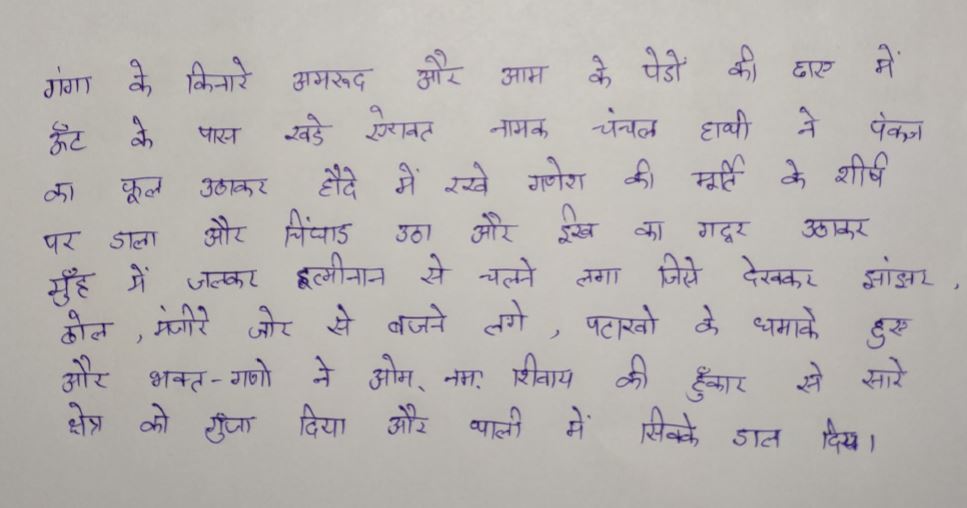 गंगा के किनारे अमरूद और आम के पेडों की छाए में
ऊँट के पास खडे ऐरावत नामक चंचल हाथी ने पंकज
का फूल उठाकर हौदे में रखे गणेश की मूर्ति के शीर्ष
पर डाला और चिंघाड उठा और ईख का गट्ठर उठाकर
मुँह में डालकर इत्मीनान से चलने लगा जिसे देखकर झांझर,
ढोल, मंजीरे जोर से बजने लगे, पटाखो के धमाके हुए
और भक्त-गणो ने ओम. नम. शिवाय की हुँकार से सारे
क्षेत्र को गुँजा दिया और थाली में सिक्के डाल दिए।